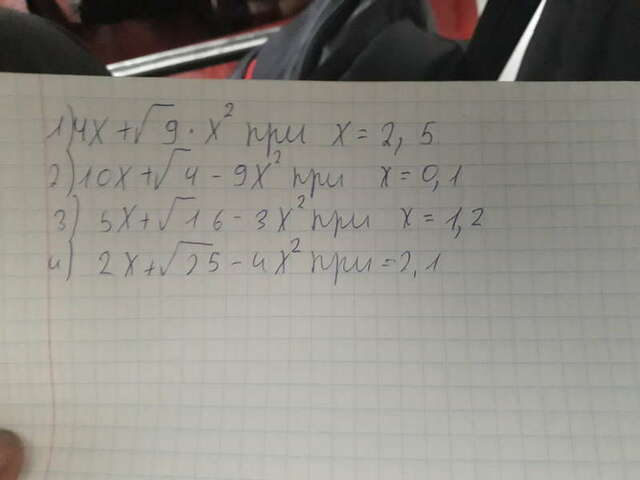 1) 4x + √9 · x² при x = 2,5
2) 10x + √4 - 9x² при x = 0,1
3) 5x + √16 - 3x² при x = 1,2
4) 2x + √25 - 4x² при = 2,1